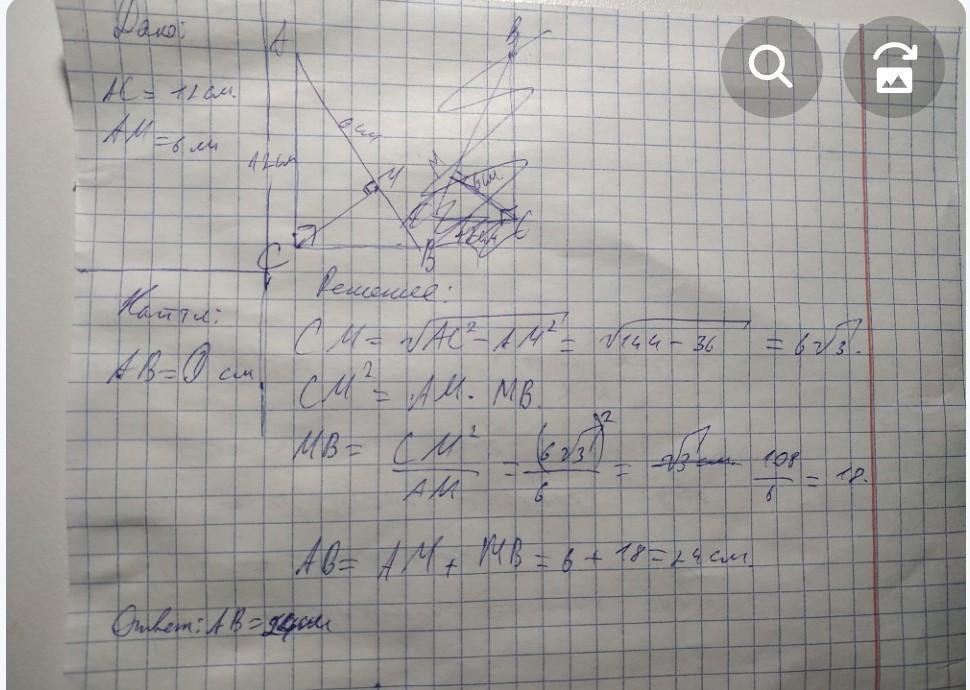 Дано:
AC = 12 см.
AM = 6 см
A
6 см
12 см
M
C
B
B
M
6 см
C
Найти:
AB = () см
Решение:
CM = √AC² - AM² = √144 - 36 = 6√3.
CM² = AM · MB.
MB = CM²/AM = (6√3)²/6 = 108/6 = 18.
AB = AM + MB = 6 + 18 = 24 см.
Ответ: AB = 24 см